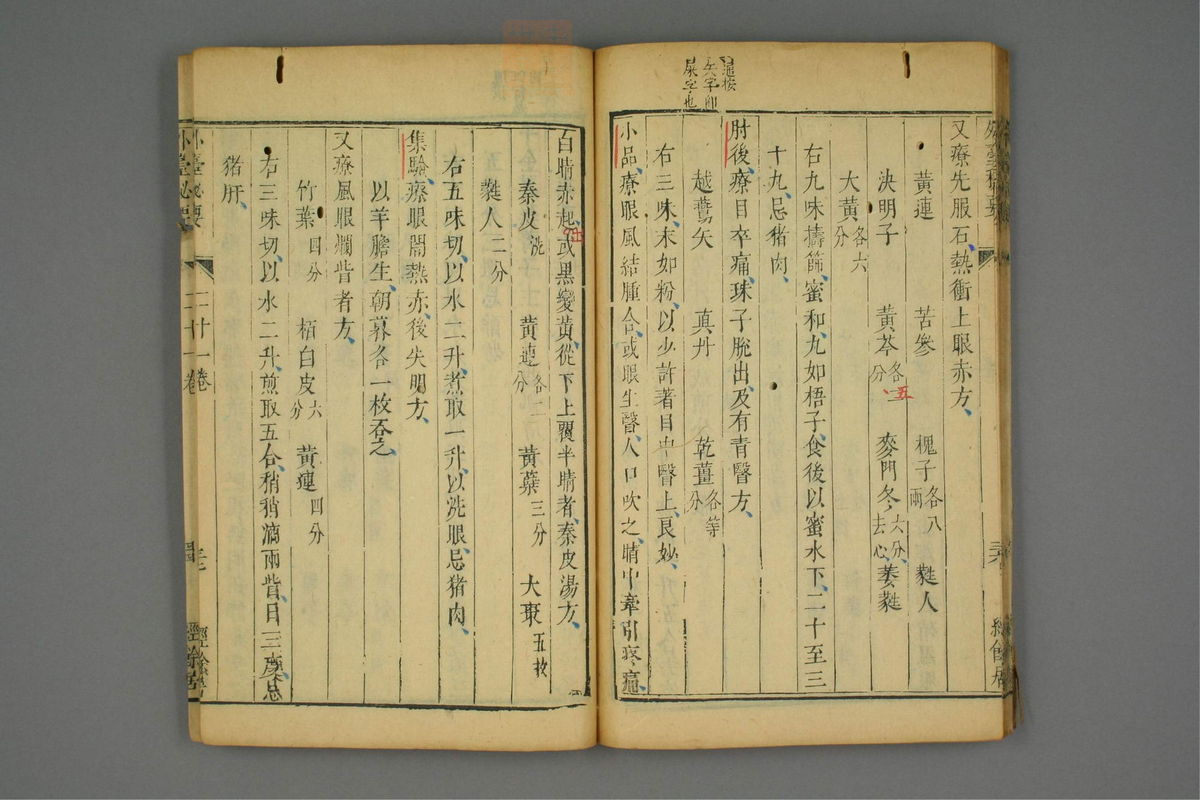 又療先服石熱衝上眼赤方
黃連 苦參 槐子各八兩 蕤人
決明子 黃芩各三分 麥門冬六分去心 萎蕤
大黃各六分
右九味擣篩蜜和丸如梧子食後以蜜水下二十至三
十丸忌豬肉
肘後療目卒痛珠子脫出及有青瞖方
越鷰矢 真丹 乾薑各等分
右三味末如粉以少許著目中瞖上良妙
小品療眼風結腫合或眼生瞖人口吹之睛中牽引疼痛
矢字即
屎字也
五
白睛赤起或黑變黃從下上覆半睛者秦皮湯方
秦皮洗 黃連各二分 黃蘗三分 大棗五枚
蕤人二分
右五味切以水二升煮取一升以洗眼忌豬肉
集驗療眼闇熱赤後失明方
以羊膽生朝暮各一枚吞之
又療風眼爛眥者方
竹葉四分 栢白皮六分 黃連四分
右三味切以水二升煎取五合稍稍滴兩眥日三度忌
豬肝
外臺秘要
二十一卷
經餘居